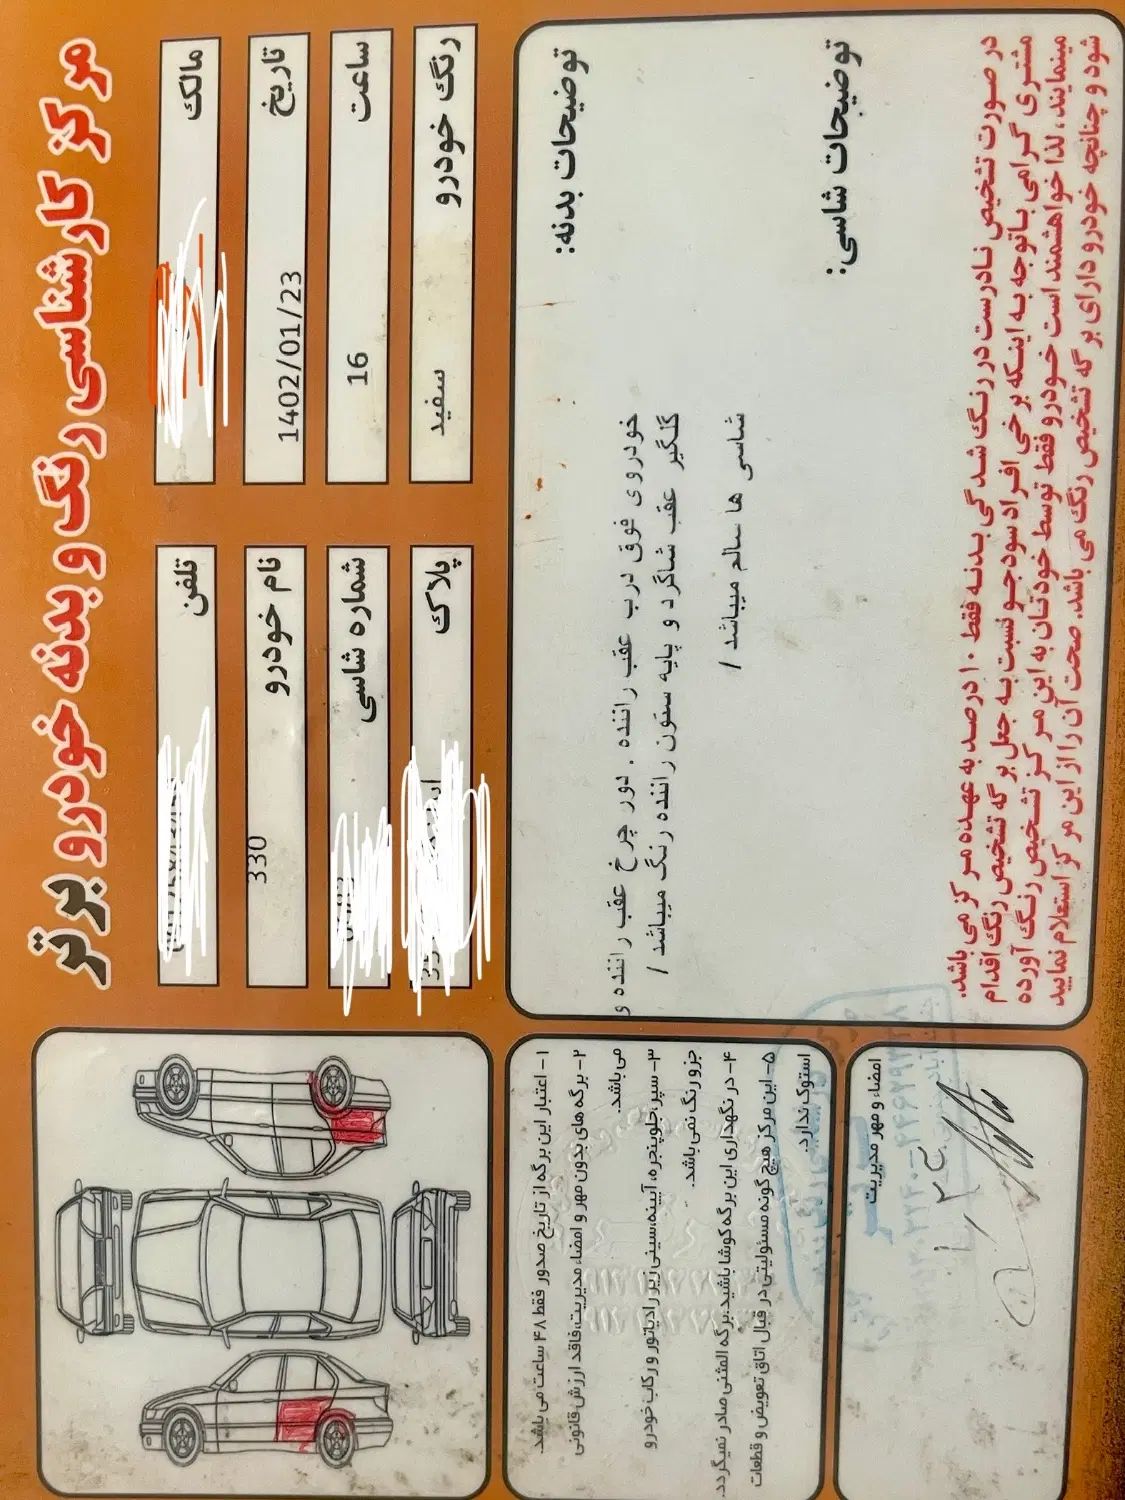 مرکز کارشناسی رنگ و بدنه خودرو برتر
مالک
تلفن
تاریخ 1402/01/23
نام خودرو 330
ساعت 16
شماره شاسی
رنگ خودرو سفید
پلاک
توضیحات بدنه:
خودروی فوق درب عقب راننده . دور چرخ عقب راننده و
گلگیر عقب شاگرد و پایه ستون راننده رنگ میباشد /
شاسی ها سالم میباشد /
توضیحات شاسی:
در صورت تشخیص نادرست در رنگ شدگی بدنه فقط ۱۰ درصد به عهده مرکز می باشد.
مشتری گرامی باتوجه به اینکه برخی افراد سودجو نسبت به جعل برگه تشخیص رنگ اقدام
مینمایند، لذا خواهشمند است خودرو فقط توسط خودتان به این مرکز تشخیص رنگ آورده
شود و چنانچه خودرو دارای برگه تشخیص رنگ می باشد. صحت آن را از این مرکز استعلام نمایید
۱- اعتبار این برگه از تاریخ صدور فقط ۴۸ ساعت می باشد.
۲- برگه های بدون مهر و امضاء مدیریت، فاقد ارزش قانونی
می باشد.
۳- سپر، جلوپنجره، آیینه، سینی زیر رادیاتور و رکاب خودرو
جزو رنگ نمی باشد.
۴- در نگهداری این برگه کوشا باشید، برگه المثنی صادر نمیگردد.
۵- این مرکز هیچ گونه مسئولیتی در قبال اتاق تعویض و قطعات
استوک ندارد.
امضاء و مهر مدیریت